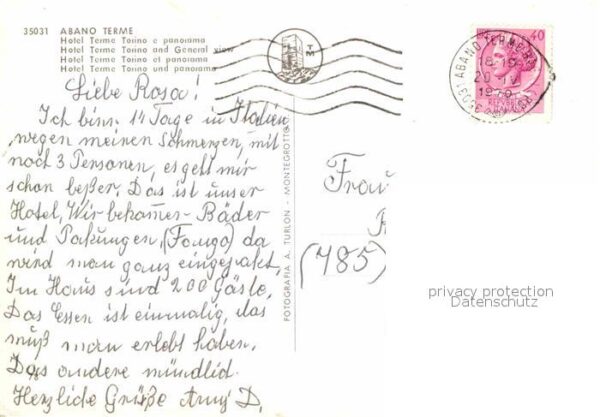 35031 ABANO TERME
Hotel Terme Torino e panorama
Hotel Terme Torino and General view
Hotel Terme Torino et panorama
Hotel Terme Torino und panorama
Liebe Rosa!
Ich bin 14 Tage in Italien
wegen meinen Schmerzen, mit
noch 3 Personen, es geht mir
schon beßer. Das ist unser
Hotel, Wir bekommen Bäder
und Pakungen, (Fango) da
wird man ganz eingepakt,
Im Haus sind 200 Gäste,
Das Essen ist einmalig, das
muß man erlebt haben.
Das andere mündlid.
Herzliche Grüße Amy D.
FOTOGRAFIA A. TURLON - MONTEGROTTO
TM
35031 ABANO TERME
18-19
20 IV
40
Frau
(785)
privacy protection
Datenschutz